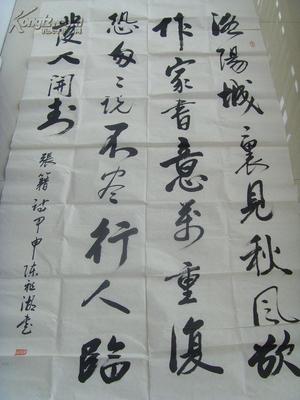 洛陽城裏見秋風欲
作家書意萬重復
恐匆〻説不盡行人臨
發又開封
張籍詩甲申陈祖澍書